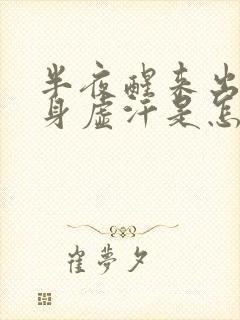 半夜醒来出
身虚汗是怎
崔梦夕